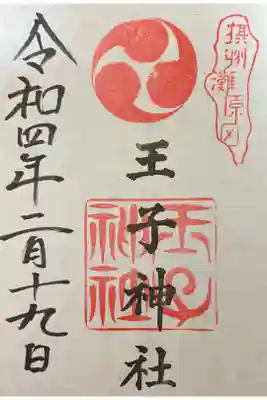 摂州
灘原田
王子神社
王子
神社
令和四年二月十九日